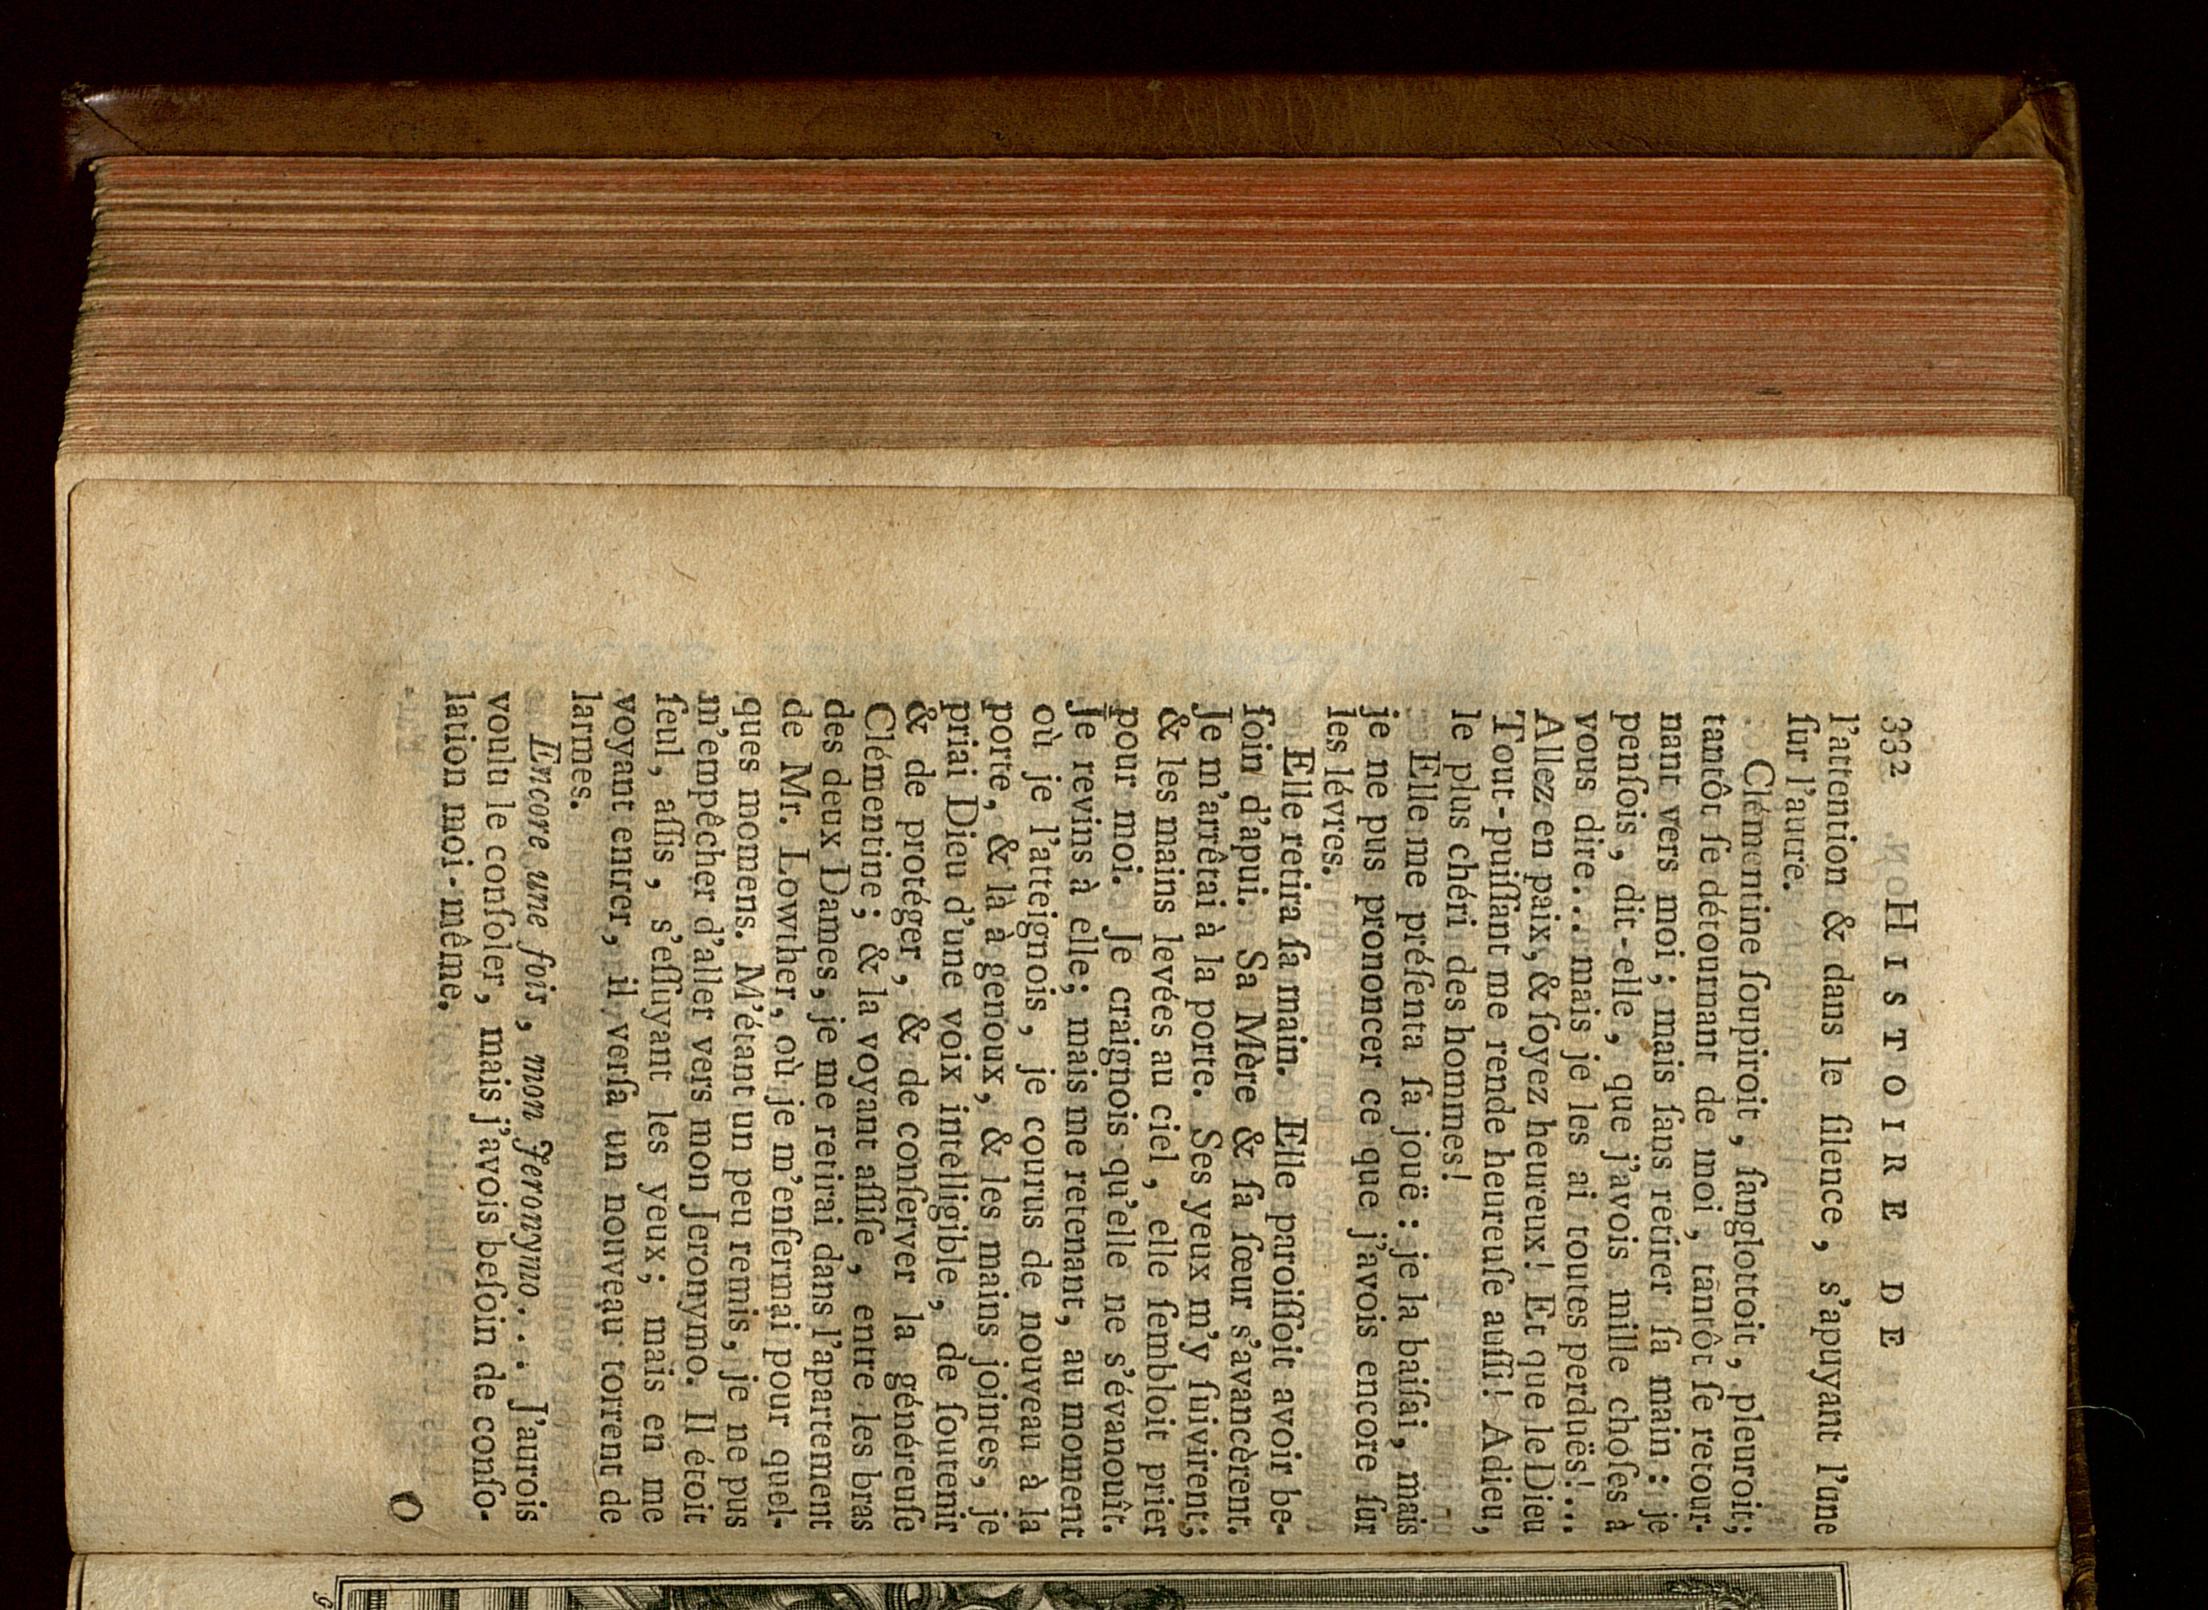 332 HISTOIRE DE
l'attention & dans le ſilence, s'apuyant l'une
ſur l'autre.
Clémentine ſoupiroit, ſanglottoit, pleuroit;
tantôt ſe détournant de moi, tantôt ſe retour-
nant vers moi; mais ſans retirer ſa main: je
penſois, dit-elle, que j'avois mille choſes à
vous dire... mais je les ai toutes perduës!...
Allez en paix, & ſoyez heureux! Et que le Dieu
Tout-puiſſant me rende heureuſe auſſi! Adieu,
le plus chéri des hommes!
Elle me préſenta ſa jouë: je la baiſai, mais
je ne pus prononcer ce que j'avois encore ſur
les lévres.
Elle retira ſa main. Elle paroiſſoit avoir be-
ſoin d'apui. Sa Mère & ſa ſœur s'avancèrent.
Je m'arrêtai à la porte. Ses yeux m'y ſuivirent;
& les mains levées au ciel, elle ſembloit prier
pour moi. Je craignois qu'elle ne s'évanouît.
Je revins à elle; mais me retenant, au moment
où je l'atteignois, je courus de nouveau à la
porte, & là à genoux, & les mains jointes, je
priai Dieu d'une voix intelligible, de ſoutenir
& de protéger, & de conſerver la généreuſe
Clémentine; & la voyant aſſiſe, entre les bras
des deux Dames, je me retirai dans l'apartement
de Mr. Lowther, où je m'enfermai pour quel-
ques momens. M'étant un peu remis, je ne pus
m'empêcher d'aller vers mon Jeronymo. Il étoit
ſeul, aſſis, s'eſſuyant les yeux; mais en me
voyant entrer, il verſa un nouveau torrent de
larmes.
Encore une fois, mon Jeronymo.... J'aurois
voulu le conſoler, mais j'avois beſoin de conſo-
lation moi-même.
O